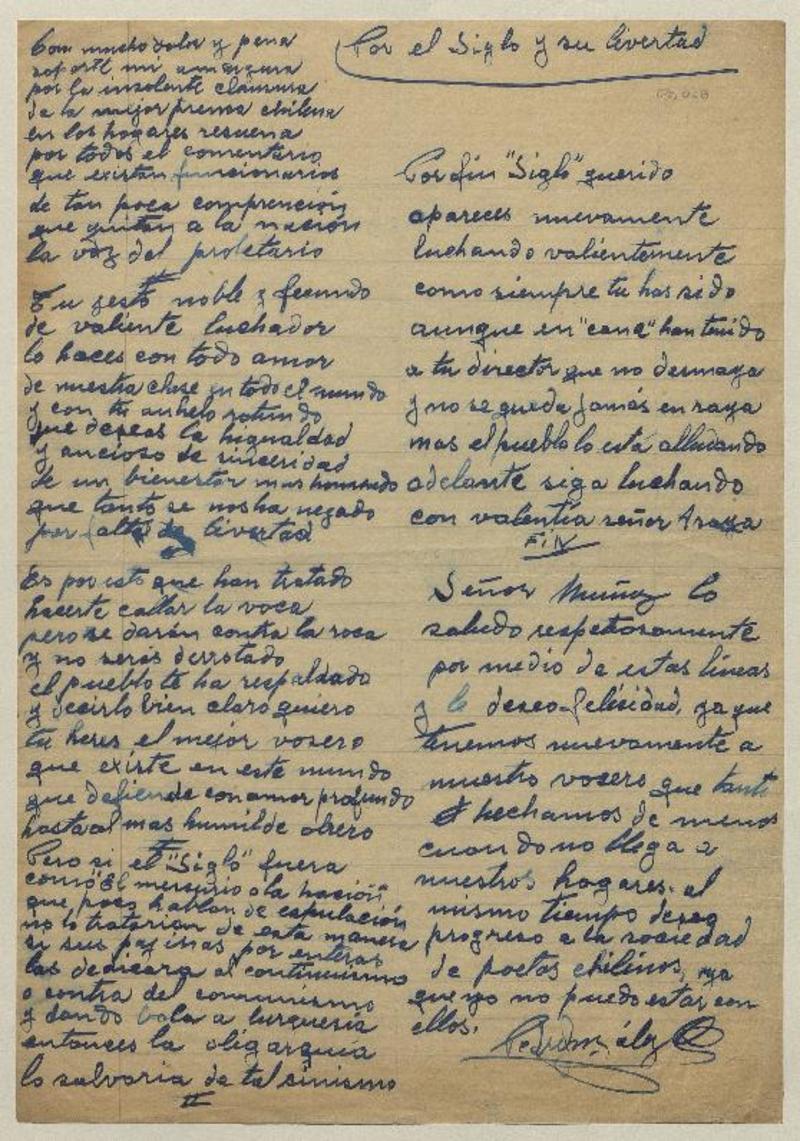 Por el Siglo y su livertad
Con mucho dolor y pena
soporté mi amargura
por la insolente clausura
de la mejor prensa chilena
en los hogares resuena
por todos el comentario
que existan funcionarios
de tan poca comprención
que quitan a la nación
la voz del proletario
Tu gesto noble y fecundo
de valiente luchador
lo haces con todo amor
de nuestra clase en todo el mundo
y con tu anhelo rotundo
que deseas la higualdad
y ancioso de sinseridad
de un bienestar mas honrrado
que tanto se nos ha negado
por falta de livertad
Es por esto que han tratado
hacerte callar la voca
pero se darán contra la roca
y no serás derrotado
el pueblo te ha respaldado
y decirlo bien claro quiero
tu heres el mejor vosero
que existe en este mundo
que defiende con amor profundo
hasta al mas humilde obrero
Pero si el "Siglo" fuera
como "El mercurio o la nación"
que poco hablan de espulación
no lo tratarian de esta manera
si sus paginas por enteras
las dedicara al continuismo
o contra del comunismo
y dando bola a burguesia
entonces la oligarquia
lo salvaria de tal sinismo
II
Por fin "Siglo" querido
apareces nuevamente
luchando valientemente
como siempre tu has sido
aunque en "cana" han tenido
a tu director que no desmaya
y no se queda jamás en raya
mas el pueblo lo está alludando
adelante siga luchando
con valentía señor Araya
FIN
Señor Muñoz lo
saludo respetosamente
por medio de estas líneas
y le deseo felisidad, ya que
tenemos nuevamente a
nuestro vosero que tanto
hechamos de menos
cuando no llega a
nuestros hogares. al
mismo tiempo deseo
progreso a la sosiedad
de poetas chilenos, ya
que yo no puedo estar con
ellos.